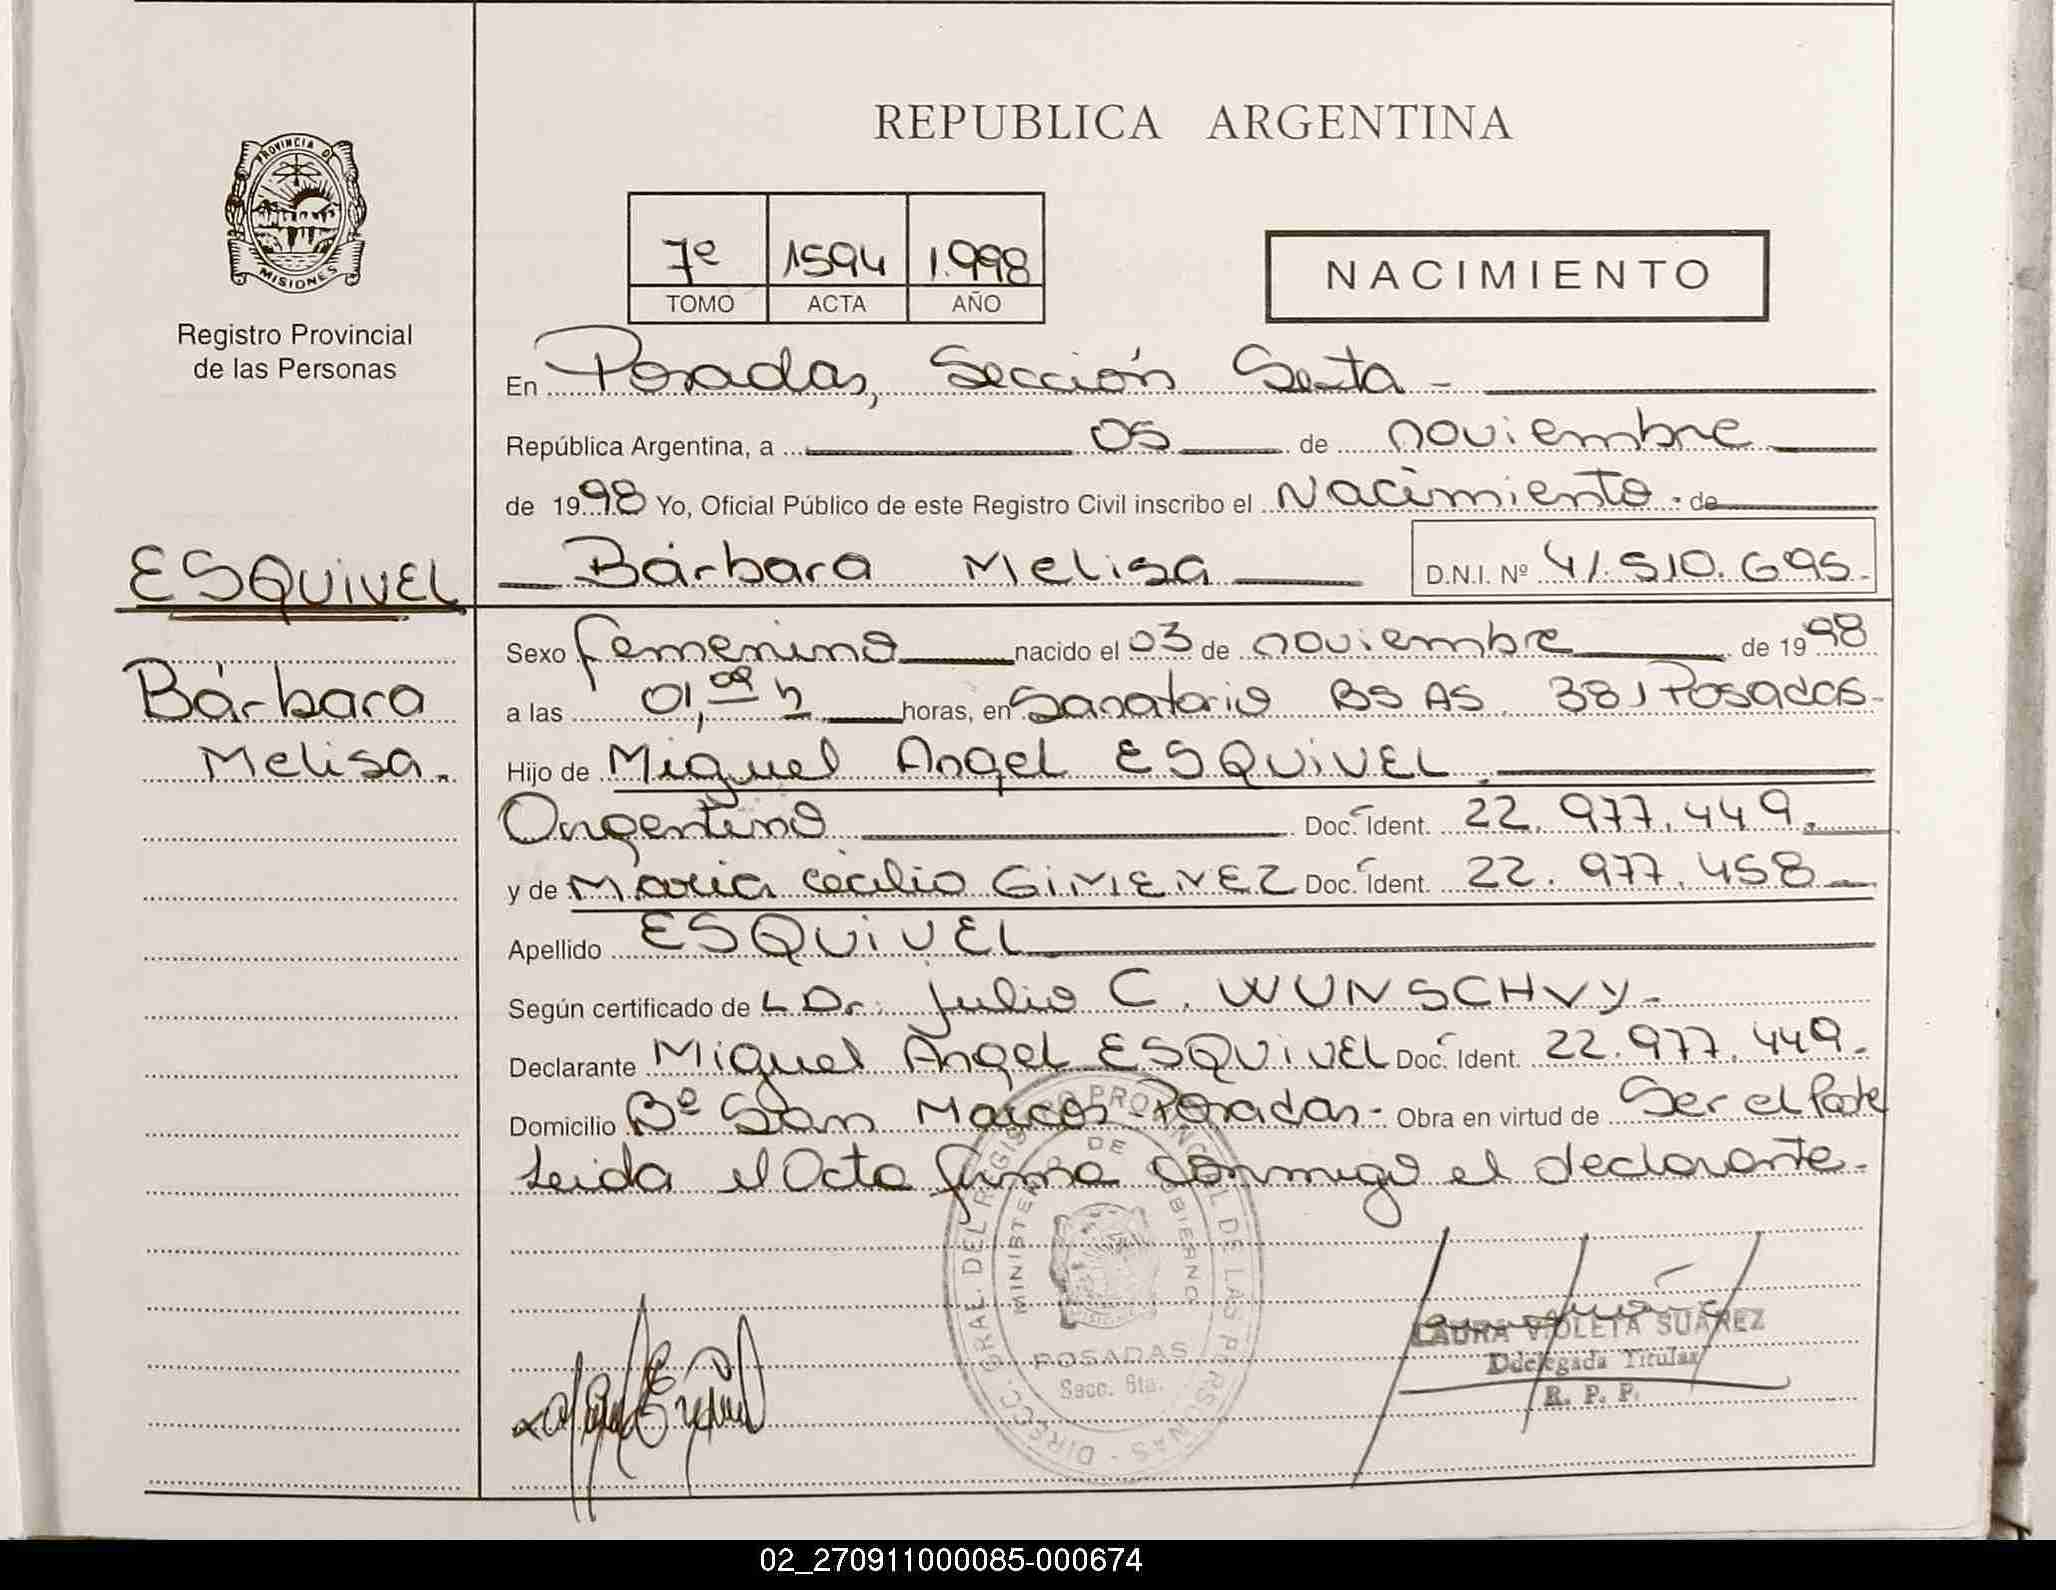 REPUBLICA ARGENTINA
PROVINCIA DE
MISIONES
Registro Provincial
de las Personas
7º 1594 1.998
TOMO ACTA AÑO
NACIMIENTO
En Posadas, Sección Sexta -
República Argentina, a 05 de noviembre
de 1998 Yo, Oficial Público de este Registro Civil inscribo el Nacimiento - de
ESQUIVEL
Bárbara Melisa D.N.I. Nº 41.510.695.
Sexo femenino nacido el 03 de noviembre de 1998
Bárbara
a las 01, h horas, en Sanatorio BS AS. 381 Posadas-
Melisa.
Hijo de Miguel Angel ESQUIVEL
Argentino Doc. Ident. 22.977.449.
y de María Cecilia GIMENEZ Doc. Ident. 22.977.458
Apellido ESQUIVEL
Según certificado de L Dr. Julio C. WUNSCHVY-
Declarante Miguel Angel ESQUIVEL Doc. Ident. 22.977.449.
Domicilio Bº San Marcos-Posadas- Obra en virtud de Ser el Padre
Leida el Acta firma conmigo el declarante-
DIRECC. GRAL. DEL REGISTRO PROVINCIAL DE LAS PERSONAS
MINISTERIO DE GOBIERNO
POSADAS
Secc. 6ta.
LAURA VIOLETA SUAREZ
Ddelegada Titular
R. P. P.
02_270911000085-000674